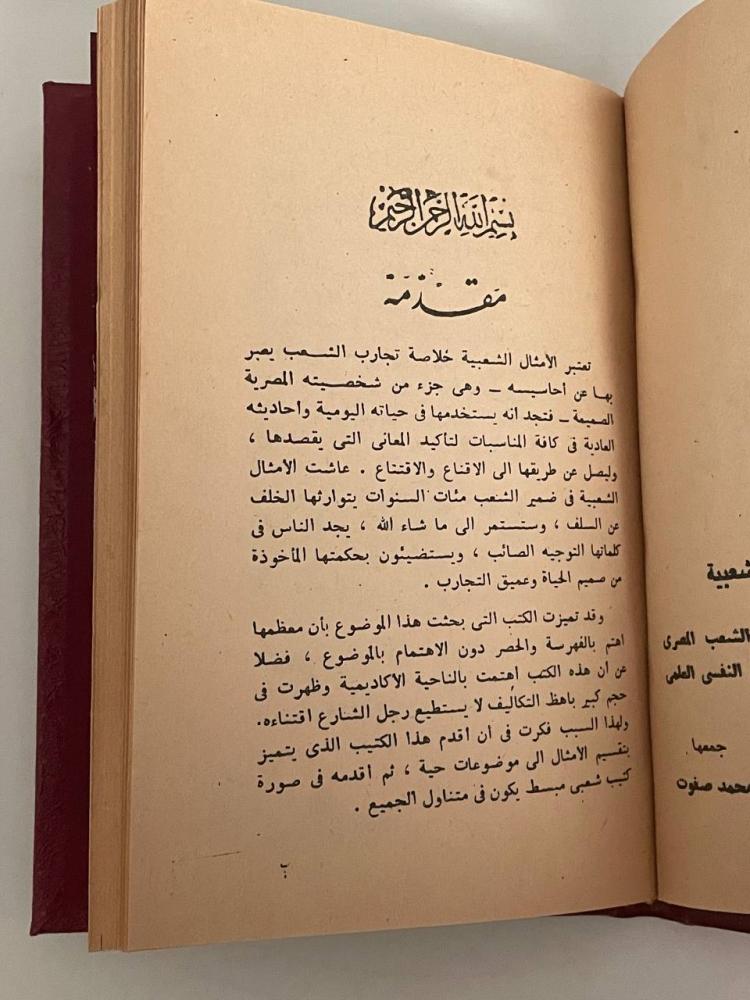 بسم الله الرحمن الرحيم
مقدمة
تعتبر الأمثال الشعبية خلاصة تجارب الشعب يعبر
بها عن أحاسيسه ــ وهى جزء من شخصيته المصرية
الصميمة ــ فتجد أنه يستخدمها فى حياته اليومية وأحاديثه
العادية فى كافة المناسبات لتأكيد المعانى التى يقصدها ،
وليصل عن طريقها الى الاقناع والاقتناع . عاشت الأمثال
الشعبية فى ضمير الشعب مئات السنوات يتوارثها الخلف
عن السلف ، وستستمر الى ما شاء الله ، يجد الناس فى
كلماتها التوجيه الصائب ، ويستضيئون بحكمتها المأخوذة
من صميم الحياة وعميق التجارب .
وقد تميزت الكتب التى بحثت هذا الموضوع بأن معظمها
اهتم بالفهرسة والحصر دون الاهتمام بالموضوع ، فضلا
عن أن هذه الكتب اهتمت بالناحية الأكاديمية وظهرت فى
حجم كبير باهظ التكاليف لا يستطيع رجل الشارع اقتناءه.
ولهذا السبب فكرت فى أن اقدم هذا الكتيب الذى يتميز
بتقسيم الأمثال الى موضوعات حية ، ثم اقدمه فى صورة
كتيب شعبى مبسط يكون فى متناول الجميع .
ب
شعبية
الشعب المصرى
النفسى العلمى
جمعها
محمد صفوت